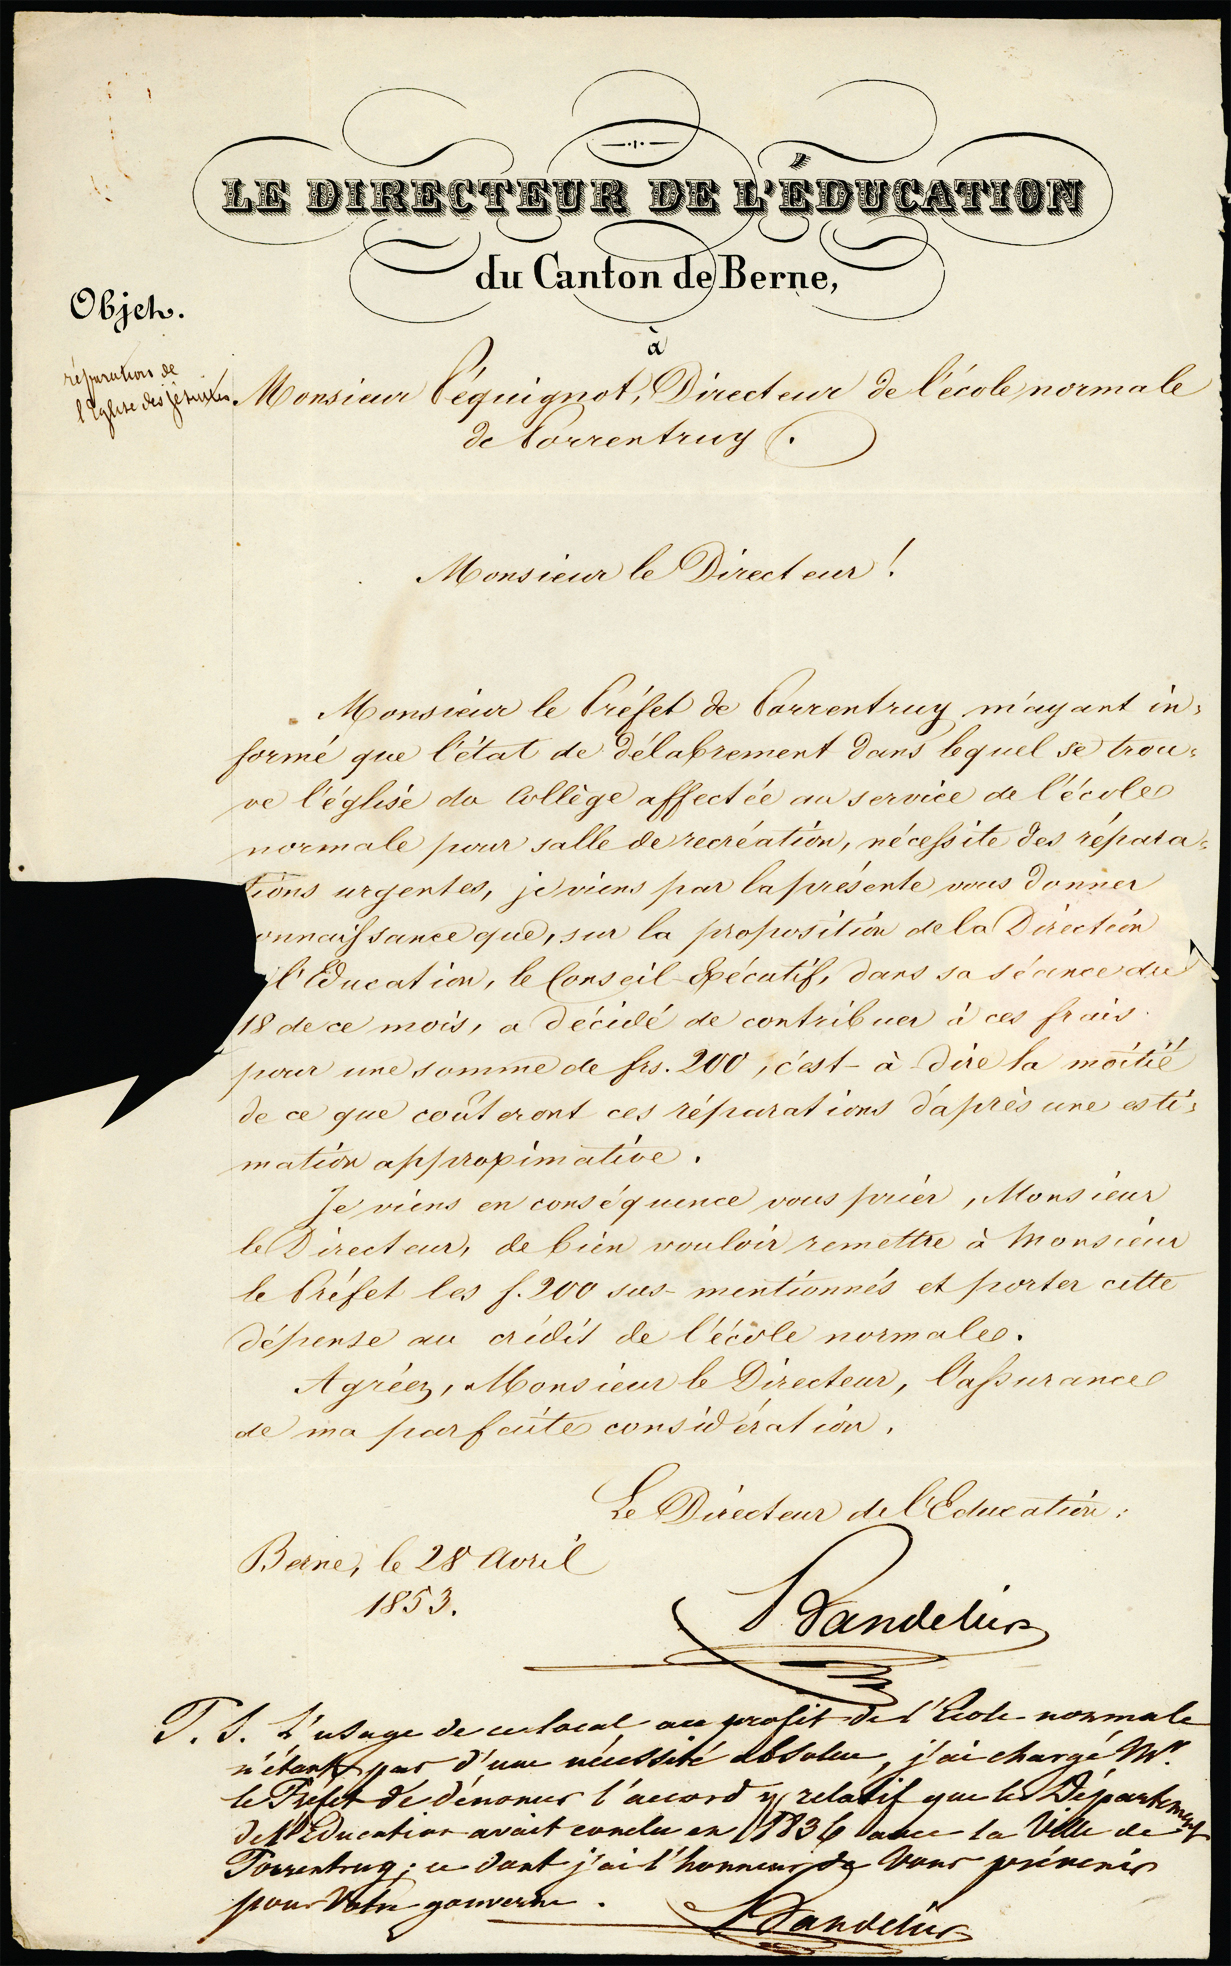 LE DIRECTEUR DE L'ÉDUCATION
du Canton de Berne,
Objet.
à
réparations de
l'Eglise des Jésuites.
Monsieur Péquignot, Directeur de l'école normale
de Porrentruy.
Monsieur le Directeur!
Monsieur le Préfet de Porrentruy m'ayant in-
formé que l'état de délabrement dans lequel se trou-
ve l'église du Collège affectée au service de l'école
normale pour salle de recréation, nécessite des répara-
tions urgentes, je viens par la présente vous donner
onnaissance que, sur la proposition de la Direction
l'Education, le Conseil-Exécutif, dans sa séance du
18 de ce mois, a décidé de contribuer à ces frais
pour une somme de frs. 200, c'est-à-dire la moitié
de ce que coûteront ces réparations d'après une esti-
mation approximative.
Je viens en conséquence vous prier, Monsieur
le Directeur, de bien vouloir remettre à Monsieur
le Préfet les f. 200 sus-mentionnés et porter cette
dépense au crédit de l'école normale.
Agréez, Monsieur le Directeur, l'assurance
de ma parfaite considération.
Le Directeur de l'Education:
Berne, le 28 Avril
1853.
P. S. L'usage de ce local au profit de l'Ecole normale
n'étant pas d'une nécessité absolue, j'ai chargé Mr.
le Préfet de dénoncer l'accord y relatif que le Département
de l'Education avait conclu en 1836 avec la Ville de
Porrentruy; ce dont j'ai l'honneur de Vous prévenir
pour Votre gouverne.